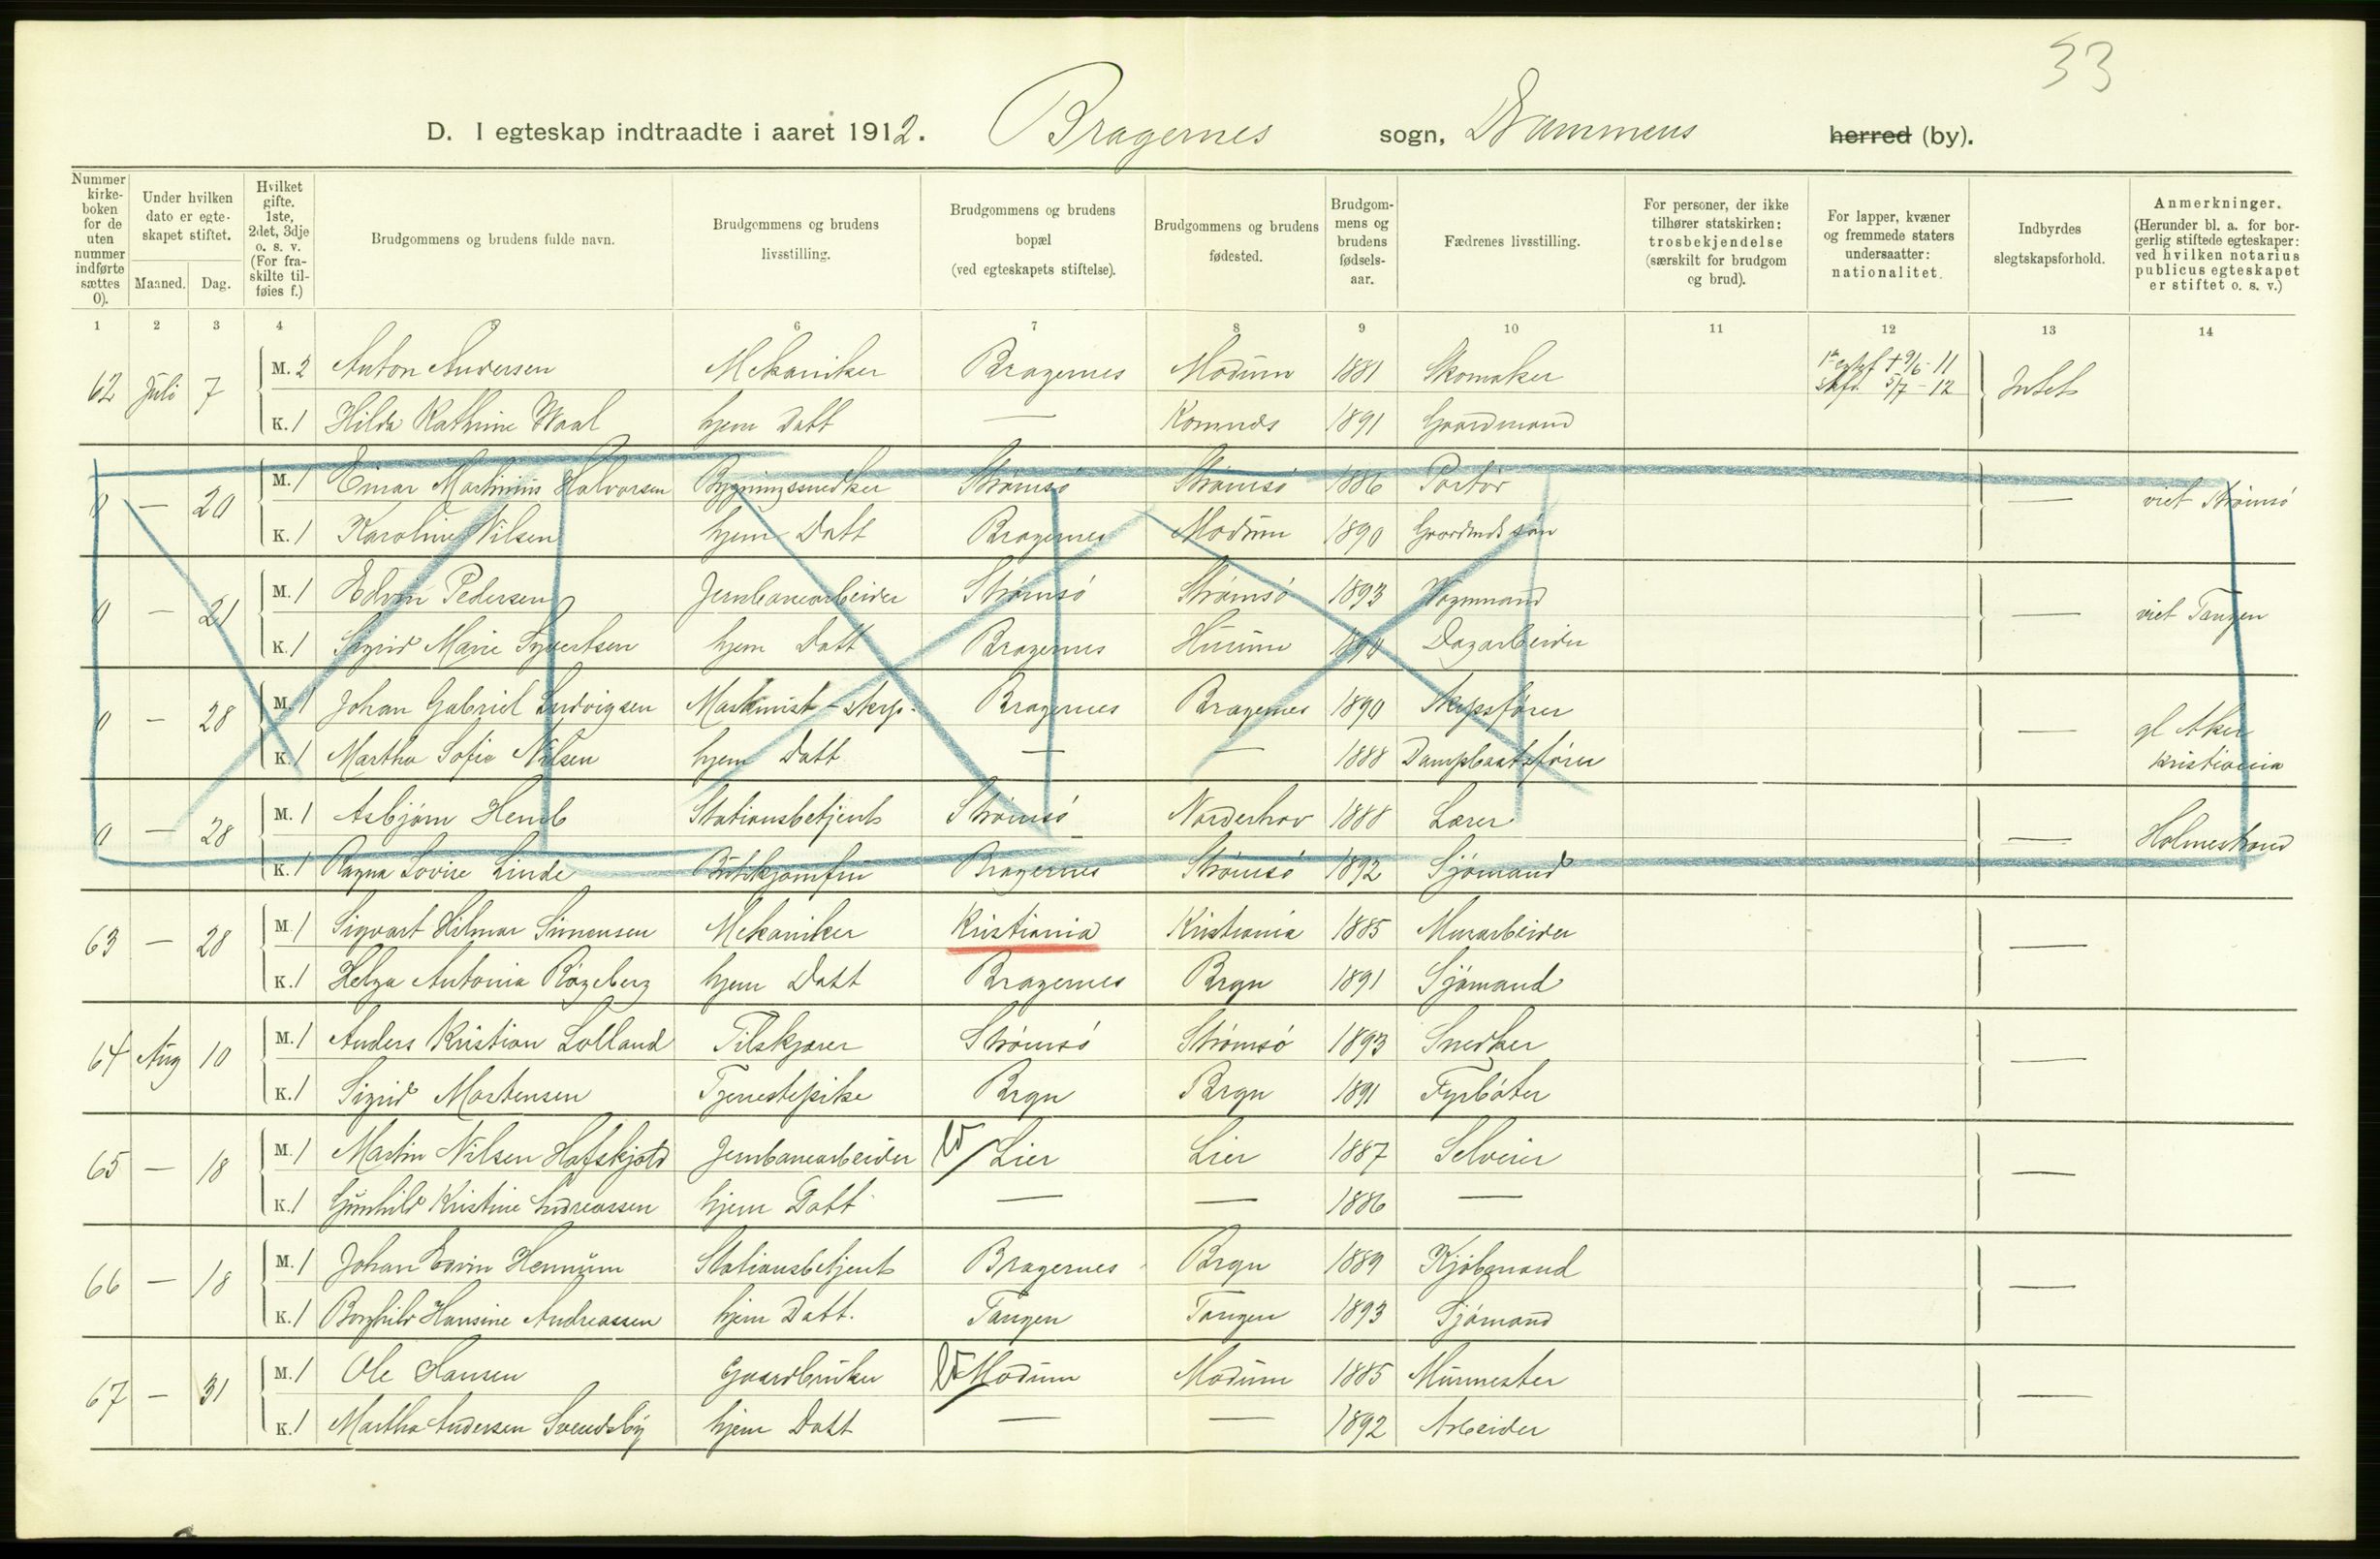 33
D. I egteskap indtraadte i aaret 1912. Bragernes sogn, Drammens herred (by).
Nummer kirkeboken for de uten nummer indførte sættes 0).
Under hvilken dato er egteskapet stiftet.
Maaned. Dag.
Hvilket gifte. 1ste, 2det, 3dje o. s. v. (For fraskilte tilføies f.)
Brudgommens og brudens fulde navn.
Brudgommens og brudens livsstilling.
Brudgommens og brudens bopæl (ved egteskapets stiftelse).
Brudgommens og brudens fødested.
Brudgommens og brudens fødselsaar.
Fædrenes livsstilling.
For personer, der ikke tilhører statskirken: trosbekjendelse (særskilt for brudgom og brud).
For lapper, kvæner og fremmede staters undersaatter: nationalitet.
Indbyrdes slegtskapsforhold.
Anmerkninger. (Herunder bl. a. for borgerlig stiftede egteskaper: ved hvilken notarius publicus egteskapet er stiftet o. s. v.)
1 2 3 4 5 6 7 8 9 10 11 12 13 14
62 Juli 7 M. 2 Anton Andersen Mekaniker Bragernes Modum 1881 Skomaker 9/6-11 5/7-12 Intet
K. 1 Hilda Kathrine Waal hjem Datt — Komnes 1891 Gaardmand
0 — 20 M. 1 Einar Martinius Halvorsen Bygningssnedker Strømsø Strømsø 1886 Portør — viet Strømsø
K. 1 Karoline Nilsen hjem Datt Bragernes Modum 1890
0 — 21 M. 1 Edvin Pedersen Jernbanearbeider Strømsø Strømsø 1893 Vognmand — viet Tangen
K. 1 Sigrid Marie Syvertsen hjem Datt Bragernes Hurum 1890 Dagarbeider
0 — 28 M. 1 Johan Gabriel Ludvigsen Maskinist - Bragernes Bragernes 1890 Skipsfører — gl Aker Kristiania
K. 1 Martha Sofie Nilsen hjem Datt — — 1888 Dampbaatsfører
0 — 28 M. 1 Asbjørn Hemb Stationsbetjent Strømsø Norderhov 1888 Lærer — Holmestrand
K. 1 Ragna Lovise Linde Butikjomfru Bragernes Strømsø 1892 Sjømand
63 — 28 M. 1 Sigvart Hilmar Simensen Mekaniker Kristiania Kristiania 1885 Murarbeider —
K. 1 Helga Antonia Røgeberg hjem Datt Bragernes Brgn 1891 Sjømand
64 Aug 10 M. 1 Anders Kristian Lolland Tilskjærer Strømsø Strømsø 1893 Snedker —
K. 1 Sigrid Mortensen Tjenestepike Brgn Brgn 1891 Fyrbøter
65 — 18 M. 1 Martin Nilsen Hafskjold Jernbanearbeider Lier Lier 1887 Selveier —
K. 1 Gunhild Kristine Andreassen hjem Datt — — 1886 —
66 — 18 M. 1 Johan Edvin Hennum Stationsbetjent Bragernes Brgn 1889 Kjøbmand —
K. 1 Borghild Hansine Andreassen hjem Datt. Tangen Tangen 1893 Sjømand
67 — 31 M. 1 Ole Hansen Gaardbruker Modum Modum 1885 Murmester —
K. 1 Martha Andersen Svendsby hjem Datt — — 1892 Arbeider